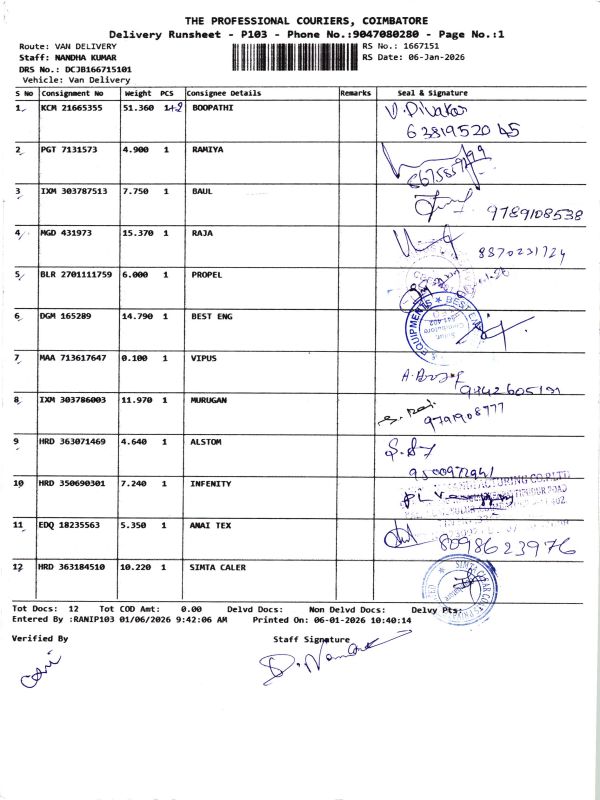 THE PROFESSIONAL COURIERS, COIMBATORE
Delivery Runsheet - P103 - Phone No.:9047080280 - Page No.:1
Route: VAN DELIVERY
RS No.: 1667151
Staff: NANDHA KUMAR
RS Date: 06-Jan-2026
DRS No.: DCJB166715101
Vehicle: Van Delivery
S No Consignment No Weight PCS Consignee Details Remarks Seal & Signature
1 KCM 21665355 51.360 1+2 BOOPATHI V. Divakar
63819520 45
2 PGT 7131573 4.900 1 RAMIYA
3 IXM 303787513 7.750 1 BAUL 9789108538
4 MGD 431973 15.370 1 RAJA 8870231724
5 BLR 2701111759 6.000 1 PROPEL
6 DGM 165289 14.790 1 BEST ENG
EQUIPMENTS ★ BEST
7 MAA 713617647 0.100 1 VIPUS
8 IXM 303786003 11.970 1 MURUGAN
9791908777
9 HRD 363071469 4.640 1 ALSTOM
10 HRD 350690301 7.240 1 INFENITY
11 EDQ 18235563 5.350 1 ANAI TEX 8098623976
12 HRD 363184510 10.220 1 SIMTA CALER
Tot Docs: 12 Tot COD Amt: 0.00 Delvd Docs: Non Delvd Docs: Delvy Pts:
Entered By :RANIP103 01/06/2026 9:42:06 AM Printed On: 06-01-2026 10:40:14
Verified By Staff Signature